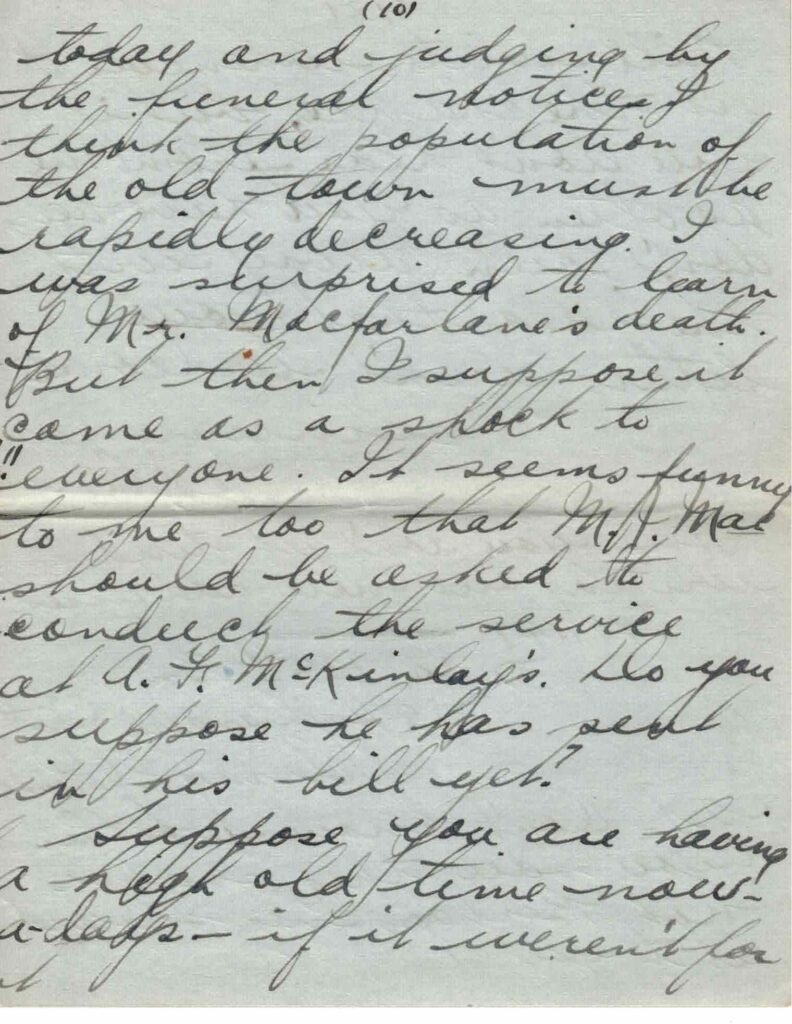 (10)
today and judging by
the funeral notices I
think the population of
the old town must be
rapidly decreasing. I
was surprised to learn
of Mr. Macfarlane's death.
But then I suppose it
came as a shock to
everyone. It seems funny
to me too that M. J. Mac
should be asked to
conduct the service
at A. F. McKinlay's. Do you
suppose he has sent
in his bill yet?
Suppose you are having
a high old time now-
a-days - if it weren't for